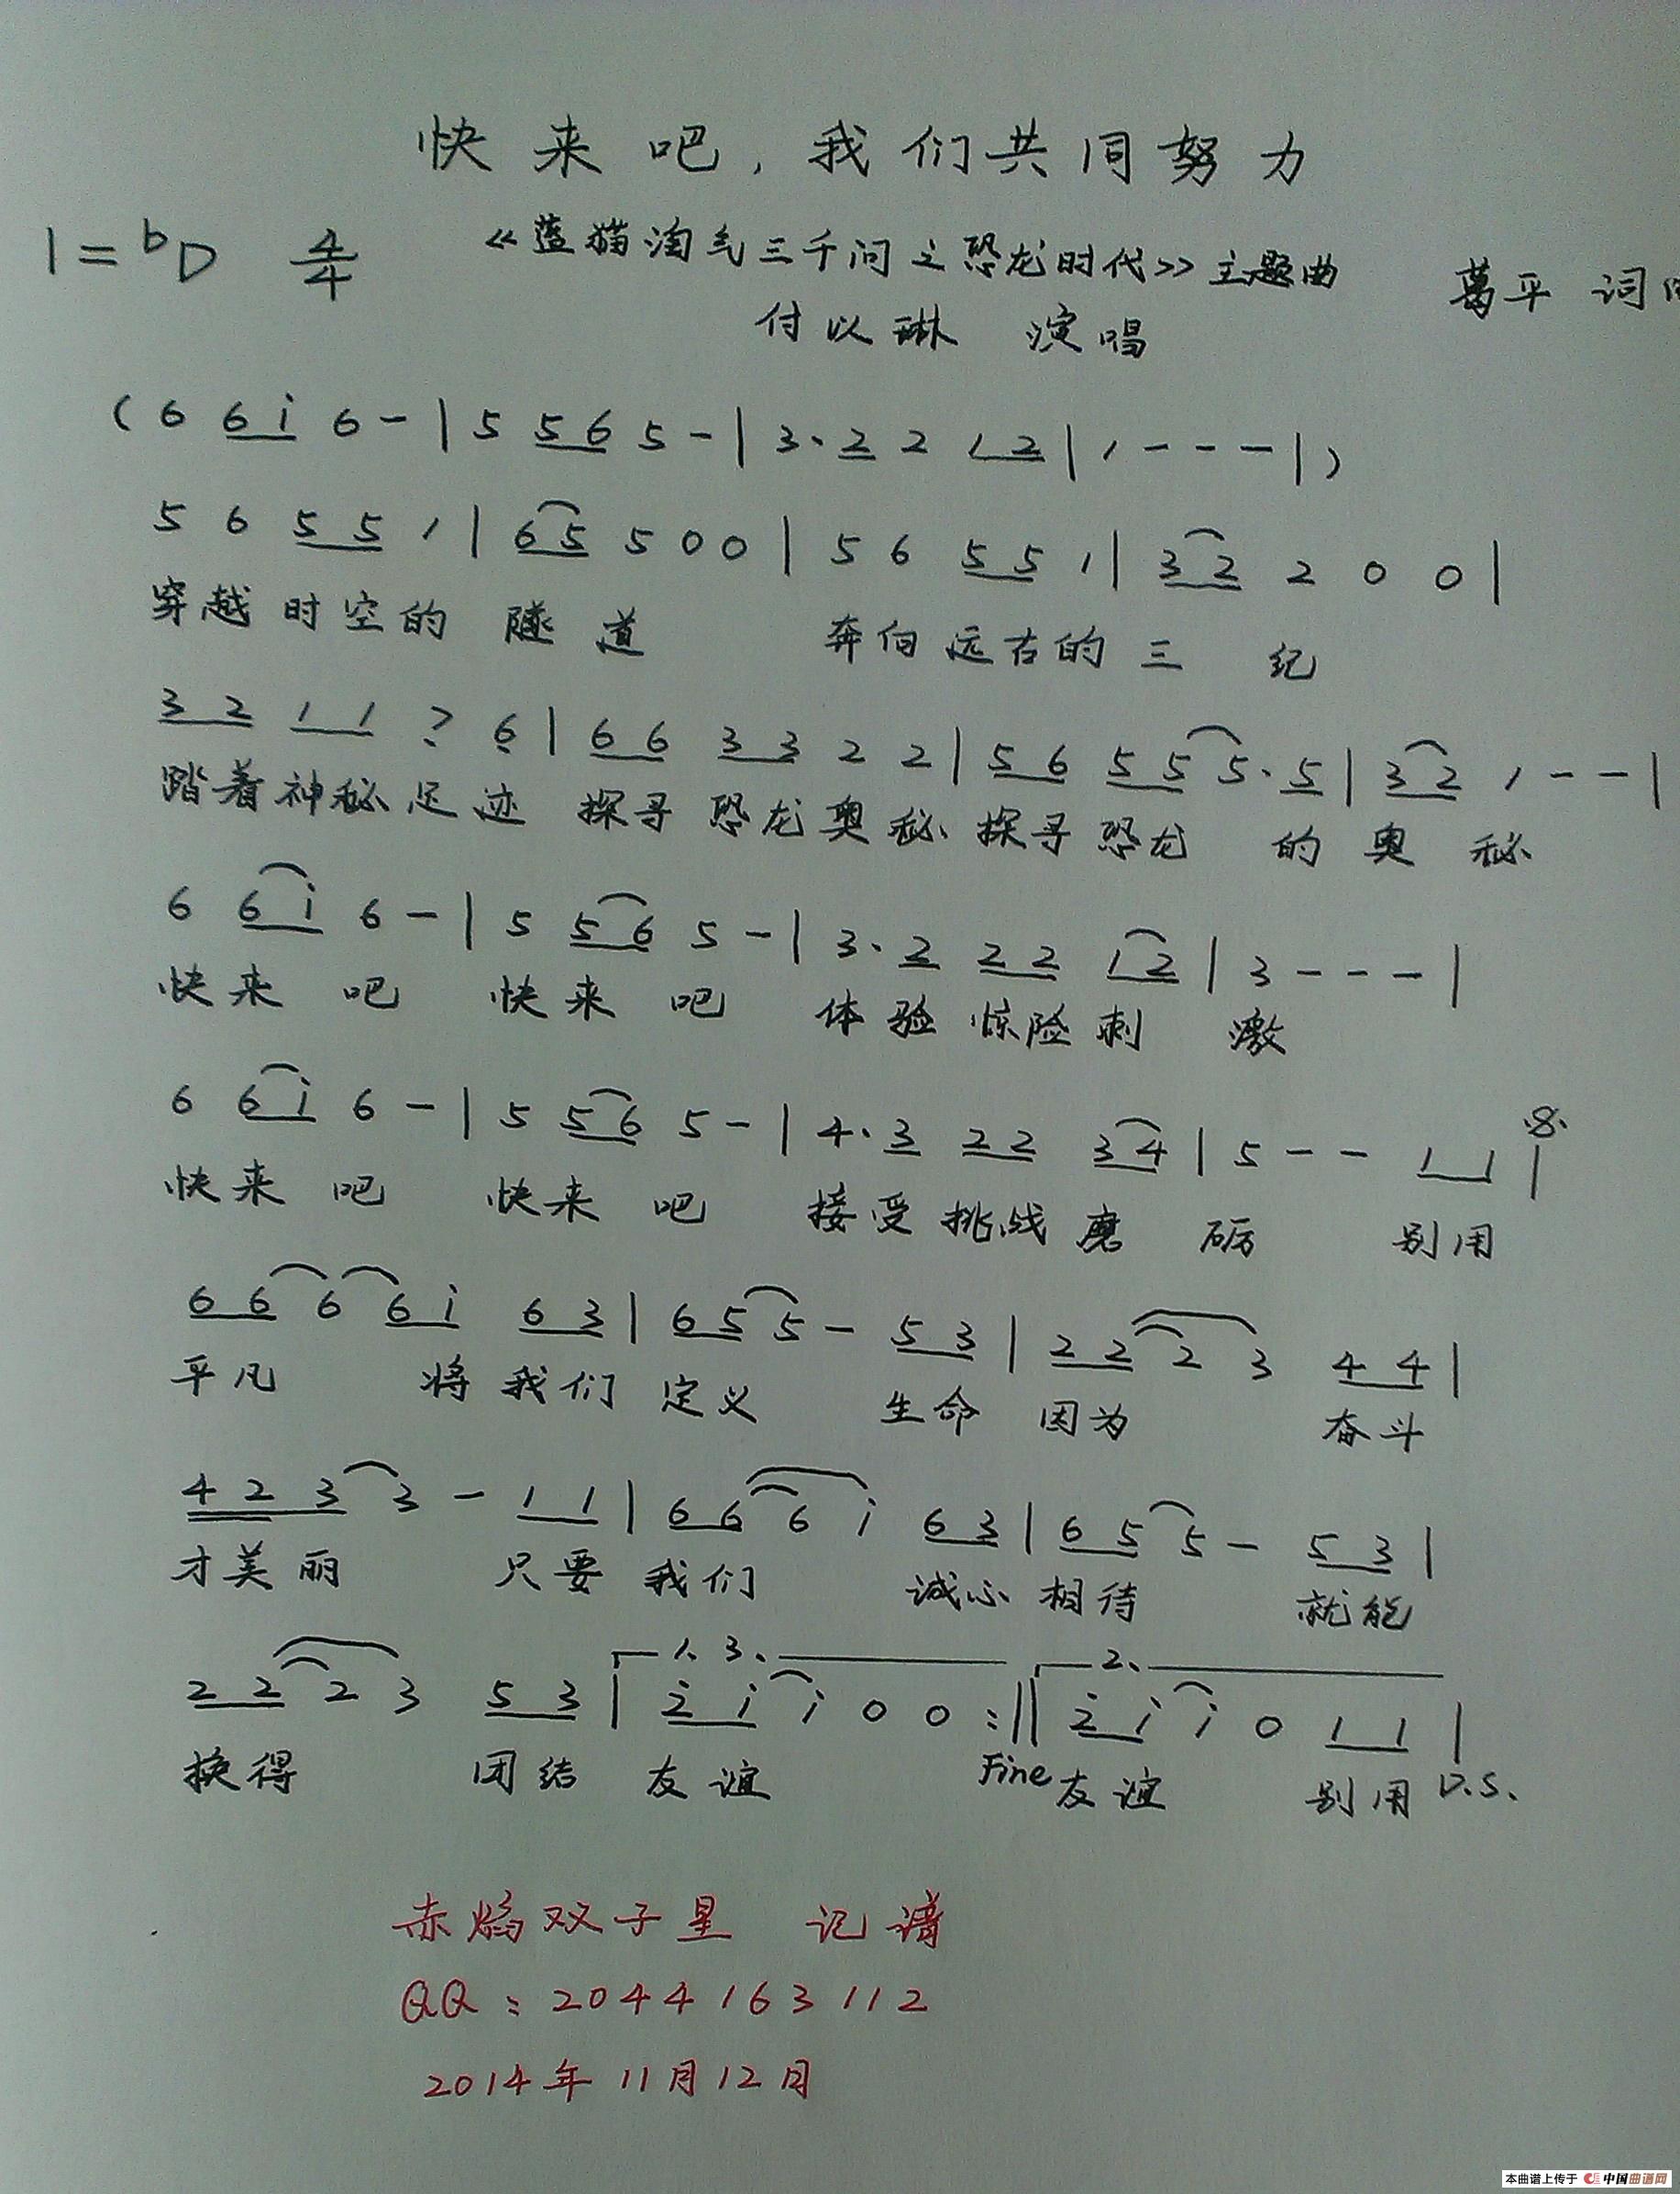 快来吧，我们共同努力
1=bD 4/4 《蓝猫淘气三千问之恐龙时代》主题曲 葛平 词
付以琳 演唱
(6 6i 6-|5 56 5-|3·2 2 12|1---|)
5 6 55 1|65 5 0 0|5 6 55 1|32 2 0 0|
穿越时空的隧道 奔向远古的三纪
32 11 7̣ 6̣|66 33 2 2|56 55 5·5|32 1--|
踏着神秘足迹 探寻恐龙奥秘 探寻恐龙的奥秘
6 6i 6-|5 56 5-|3·2 22 12|3---|
快来吧 快来吧 体验惊险刺激
6 6i 6-|5 56 5-|4·3 22 34|5-- 11 𝄋|
快来吧 快来吧 接受挑战磨砺 别用
66 6 6i 63|65 5- 53|22 2 3 44|
平凡 将我们定义 生命因为 奋斗
423 3- 11|66 6 i 63|65 5- 53|
才美丽 只要我们 诚心相待 就能
1、3、 2、
22 2 3 53|2̇i i 0 0:||2̇i i 0 11|
换得 团结友谊 Fine 友谊 别用 D.S.
赤焰双子星 记谱
QQ：2044163112
2014年11月12日
本曲谱上传于 中国曲谱网